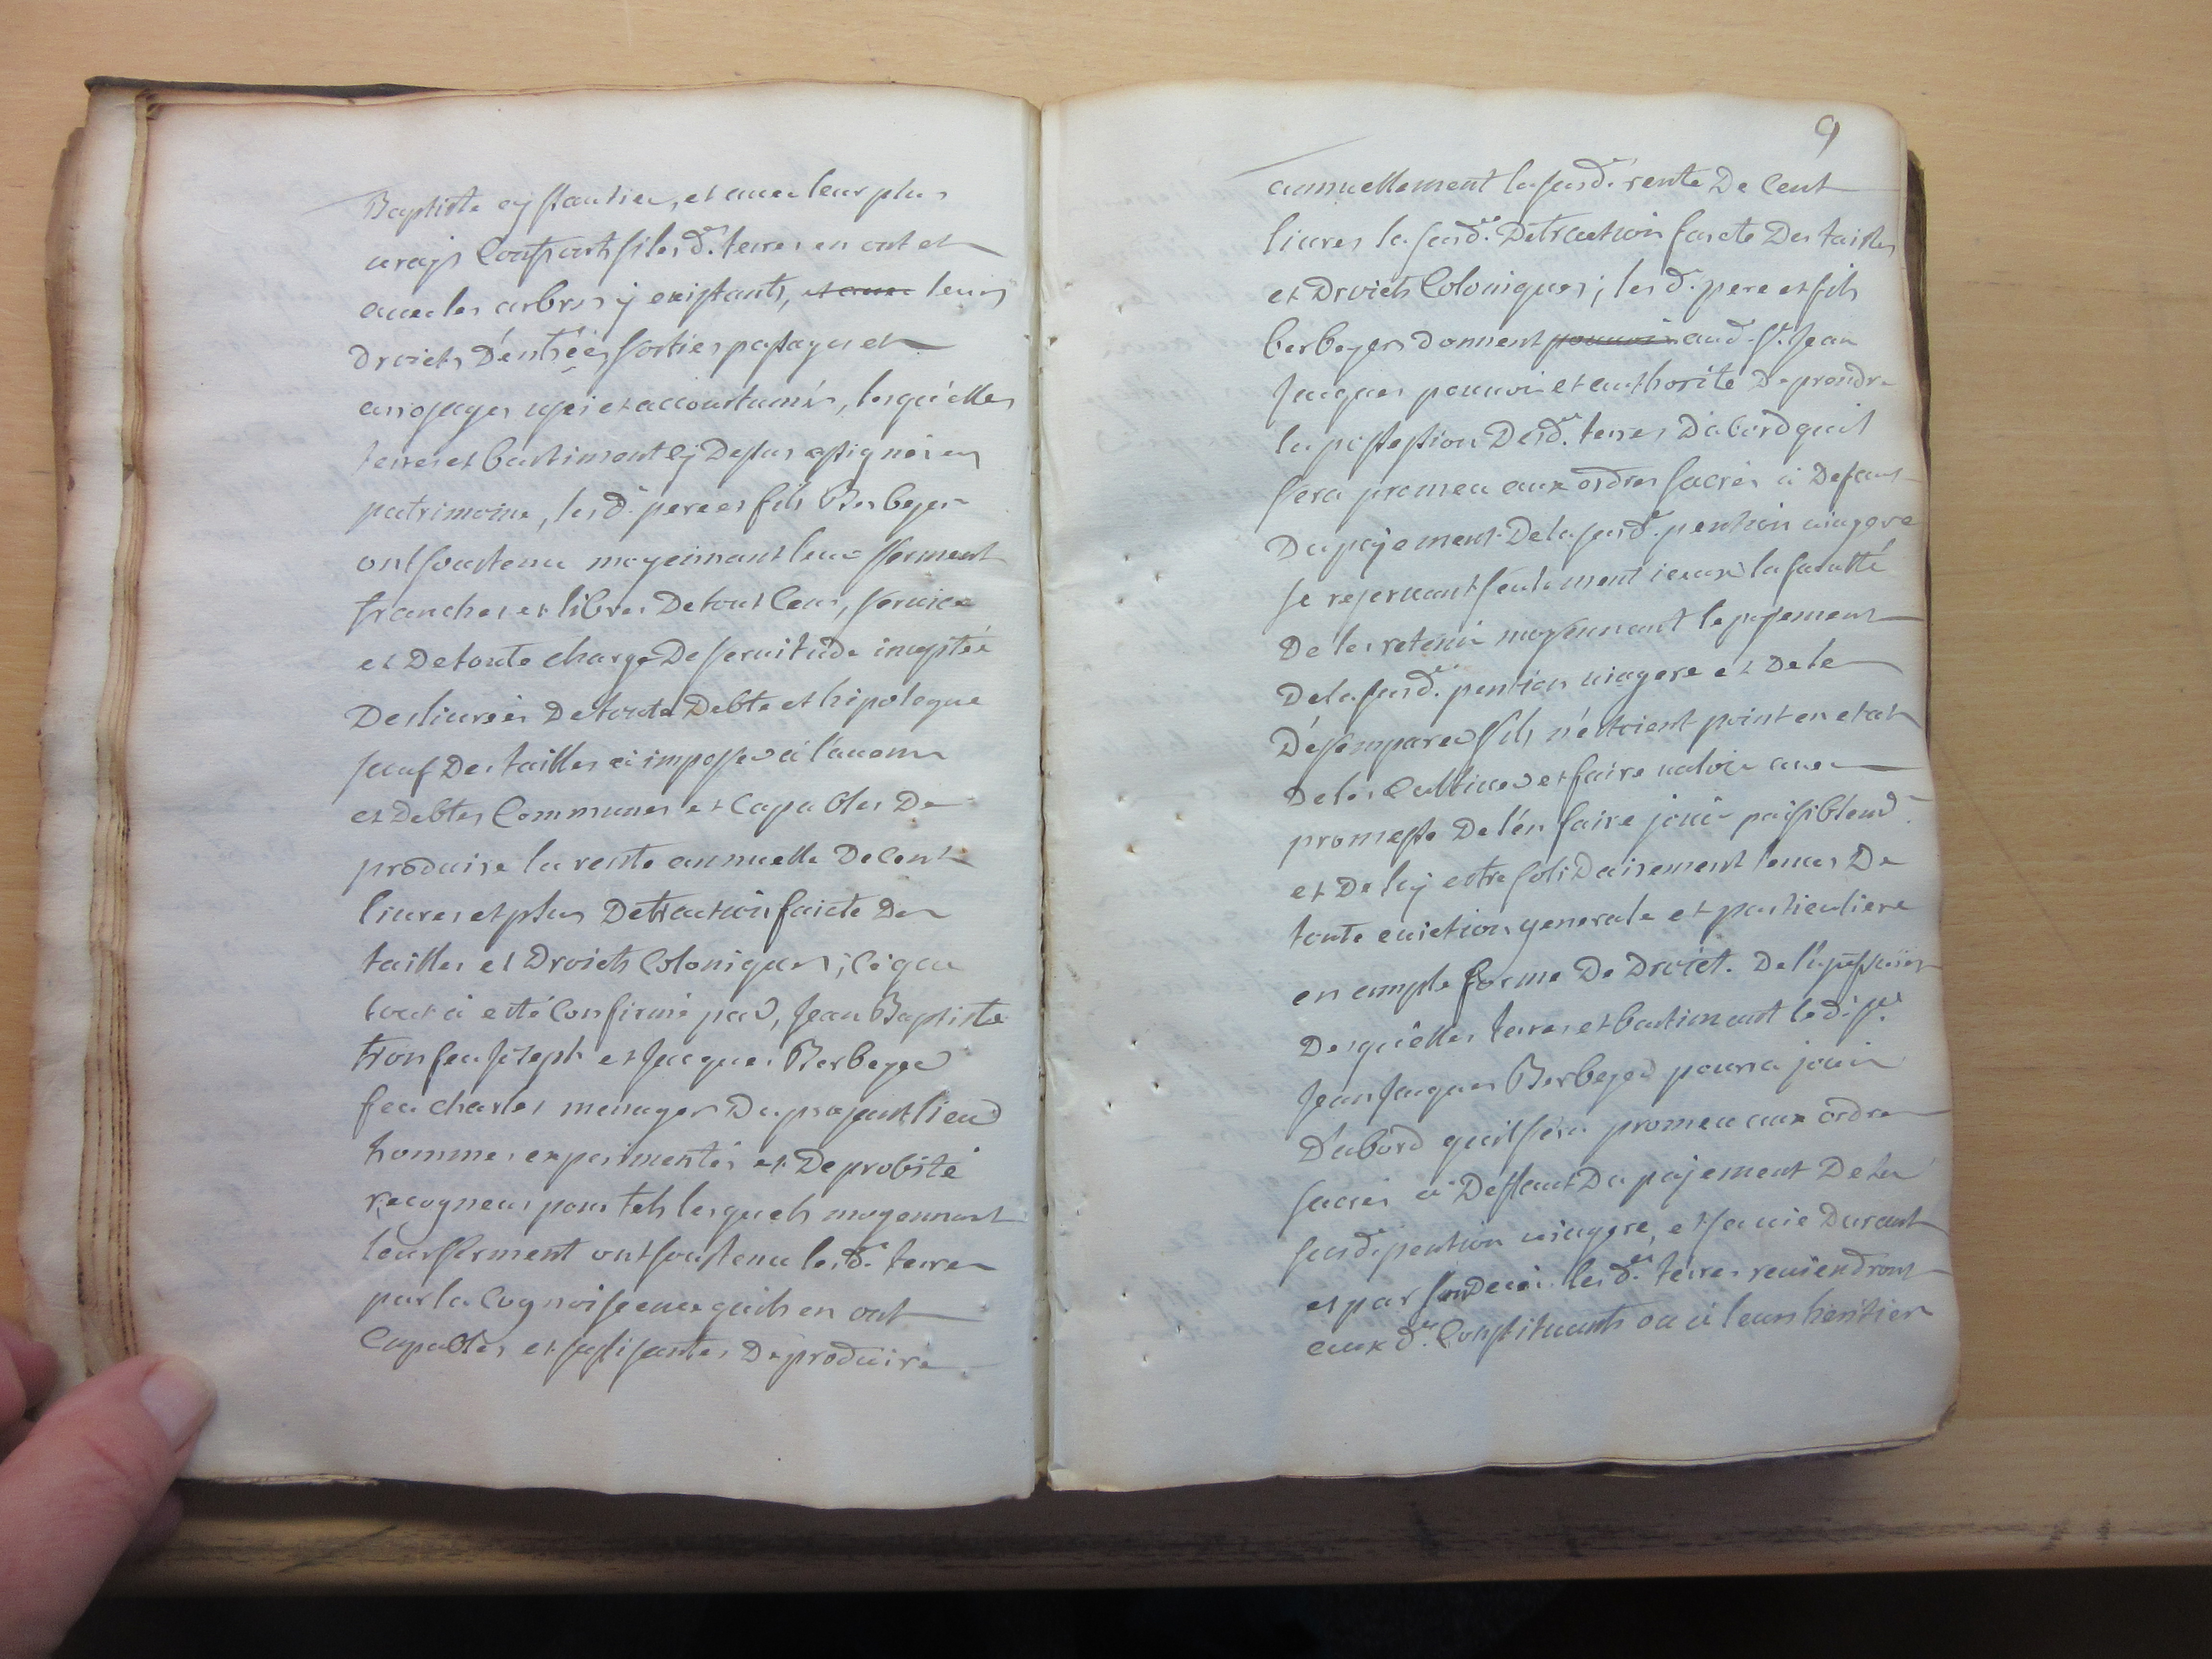 Baptiste et avec leur plus
vrays confronts si lesd. terres en ont et
avec les arbres y existants, et avec leurs
droicts d'entrées sorties passages et
arosages uzés et accoustumés, lesquelles
terres et bastiment cy dessus assignés en
patrimoine, lesd. pere et fils Berbeyer
ont soustenu moyennant leur serment
franches et libres de tout cens, service
et de toute charge de servitude
deslivrées de toute debte et hipoteque
sauf des tailles à imposer à l'avenir
et debtes communes et capables de
produire la rente annuelle de cent
livres et plus detraction faicte des
tailles et droicts coloniques; ce que
tout a esté confirmé par, Jean Baptiste
tron feu Joseph et Jacques Berbeyer
feu charles menager du present lieu
hommes experimentés et de probité
recogneus pour tels lesquels moyennant
leur serment ont soustenu lesd. terres
par la cognoissence quils en ont
capables et sufisantes de produire
9
annuellement la susd.e rente de cent
livres la susd.e detraction faicte des tailles
et droicts coloniques; lesd. pere et fils
berbeyer donnent pouvoir aud. Sr. Jean
Jacques pouvoir et authorité de prendre
la possession desd.es terres d'abord quil
sera promeu aux ordres sacrés à defaut
du payement de la susd.e pention viagere
se reservant seulement iceux la faculté
de les retenir moyennant le payement
de la susd.e pention viagere et de le
désemparer sils n'éttoient point en etat
de les cultiver et faire valoir avec
promesse de l'én faire jouir paisiblemt.
et de luy estre solidairement tenus de
toute eviction generale et particuliere
en ample forme de droict. De
desquélles terres et bastiment led. Sr.
Jean Jacques Berbeyer pourra jouir
d'abord quil sera promeu aux ordres
sacrés à deffaut du payement de la
susd.e pention viagere, et sa vie durant
et par son decés lesd.es terres reviendront
aux d.ts constituants ou à leurs heritiers